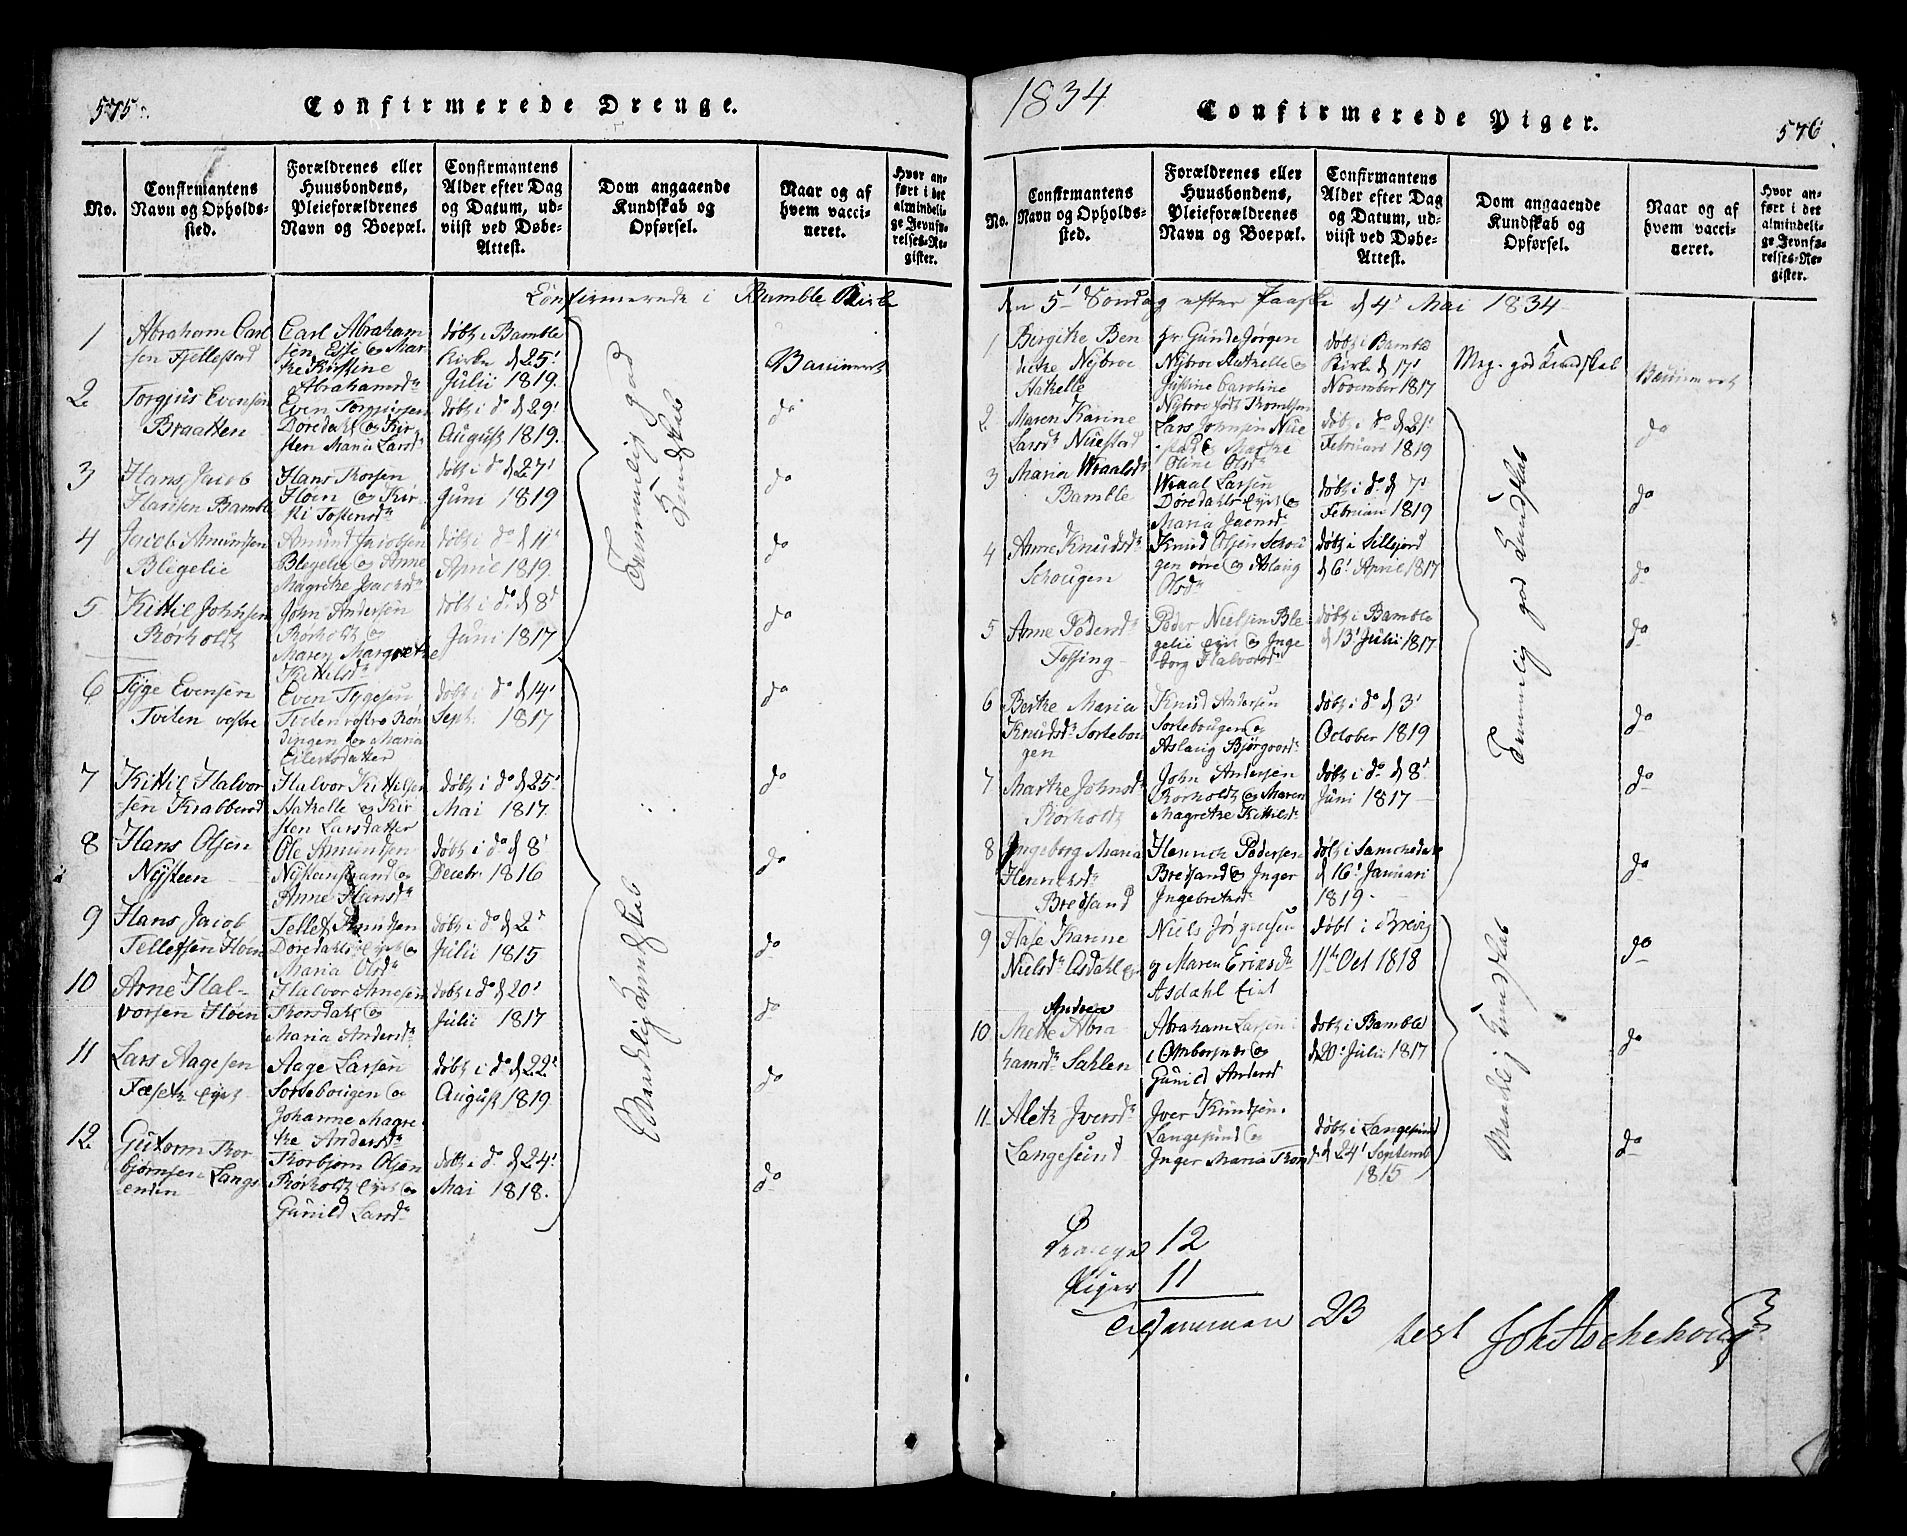 575.
Confirmerede Drenge.
No.
Confirmantens
Navn og Opholds-
sted.
Forældrenes eller
Huusbondens,
Pleieforældrenes
Navn og Boepæl.
Confirmantens
Alder efter Dag
og Datum, ud-
viist ved Døbe-
Attest.
Dom angaaende
Kundskab og
Opførsel.
Naar og af
hvem vacci-
neret.
Hvor an-
ført i det
almindeli-
ge Jevnfø-
relses-Re-
gister.
Confirmerede i Bamble Kirke
1
Abraham Carl
sen Fjellestad
Carl Abraham
sen Essi og Mar-
the Kirstine
Abrahamsdr
døbt i Bamble
Kirke d 25'
Julii 1819.
Temmelig god
Kundskab
Vaccineret
2
Torgius Evensen
Braatten
Even Torgiussen
Doredahl og Kir
sten Maria Larsdr
døbt i do d 29'
August 1819.
do
3
Hans Jacob
Hansen Bamble
Hans Thorsen
Hoen og Kir
sti Tostensdr
døbt i do d 27'
Juni 1819
do
4
Jacob Amunsen
Bligelie
Amund Jacobsen
Blegelie og Anne
Magrethe Jacobsdr
døbt i do d 11'
April 1819.
do
5
Kittil Johnsen
Rørholt
John Andersen
Rørholt og
Maren Margrethe
Kittilsdr
døbt i do d 8'
Juni 1817
do
6
Tyge Evensen
Tviten vestre
Even Tygesen
Tviten vestre
Maria
Eilertsdatter
døbt i do d 14'
Septr 1817
do
7
Kittil Halvor
sen Krabberød
Halvor Kittilsen
Hatkelle og Kir
sten Larsdatter
døbt i do d 25'
Mai 1817.
do
8
Hans Olsen
Nysteen
Ole Amundsen
Nysteenstrand og
Anne Hansdr
døbt i do d 8'
Decebr 1816
Maadelig Kundskab
do
9
Hans Jacob
Tellefsen Hoen
Tellef Knudsen
Doredahls Eyet og
Maria Olsdr
døbt i do d 2'
Julii 1815
do
10
Arne Hal-
vorsen Hoen
Halvor Arnesen
Thorsdahl og
Maria Andersdr
døbt i do d 20'
Julii 1817
do
11
Lars Aagesen
Fæseth Eyet
Aage Larsen
Sortebougen og
Johanne Magre-
the Andersdr
døbt i do d 22'
August 1819.
do
12
Gutorm Thor
bjørnsen Langs
enden
Thorbjørn Olsen
Rørholt Eyet og
Gunild Larsdr
døbt i do d 24'
Mai 1818.
do
1834
Confirmerede Piger.
576.
No.
Confirmantens
Navn og Opholds-
sted.
Forældrenes eller
Huusbondens,
Pleieforældrenes
Navn og Boepæl.
Confirmantens
Alder efter Dag
og Datum, ud-
viist ved Døbe-
Attest.
Dom angaaende
Kundskab og
Opførsel.
Naar og af
hvem vacci-
neret.
Hvor an-
ført i det
almindeli-
ge Jevnfø-
relses-Re-
gister.
den 5' Søndag efter Paaske d 4' Mai 1834
1
Birgithe Ben
dicte Nybroe
Hatkelle
Hr Gunde Jørgen
Nybroe Hatkelle og
Justine Caroline
Nybroe født
døbt i Bamble
Kirke d 17'
November 1817
Meg. god Kundskab
Vaccineret
2
Maren Karine
Larsdr Nuestad
Lars Johnsen Nue
stad og Marthe
Oline Olsdr
døbt i do d 21'
Februari 1819
Temmelig god Kundskab
do
3
Maria Wraalsdr
Bamble
Wraal Larsen
Doredahls Eyet og
Maria Jaensdr
døbt i do d 7'
Februari 1819
do
4
Anne Knudsdr
Schougen
Knud Olsen Schou
gen øvre og Aslaug
Olsdr
døbt i Sillejord
d 6' April 1817
do
5
Anne Pedersdr
Fossing
Peder Nielsen Ble
gelie Eyet og Inge
borg Halvorsdr
døbt i Bamble
d 13' Julii 1817
do
6
Berthe Maria
Knudsdr Sortebou
gen
Knud Andersen
Sortebougen og
Aslaug Bjørgvordr
døbt i do d 3'
October 1819
do
7
Marthe Johnsdr
Rørholt
John Andersen
Rørholt og Maren
Magrethe Kittilsdr
døbt i do d 8'
Juni 1817
do
8
Ingeborg Maria
Henrichsdr
Bredsand
Henrich Pedersen
Bredsand og Inger
Ingebretsdr
døbt i
d 16' Januari
1819.
do
9
Aase Karine
Nielsdr Asdahl
Niels Jørgensen
og Maren Eriksdr
Asdahl Eiet
døbt i Brevig
11te Oct 1818
Maadelig Kundskab
do
10
Andrea
Mette Abra
hamsdr Sahlen
Abraham Larsen i
Ombersnes og
Gunild Andersdr
døbt i Bamble
d 20' Julii 1817
do
11
Aleth Iversdr
Langesund
Iver Knudsen
Langesund og
Inger Maria
døbt i Langesund
d 24' Septemb
1815
do
Drenge 12
Piger 11
Tilsammen 23
test Joh Aschehoug